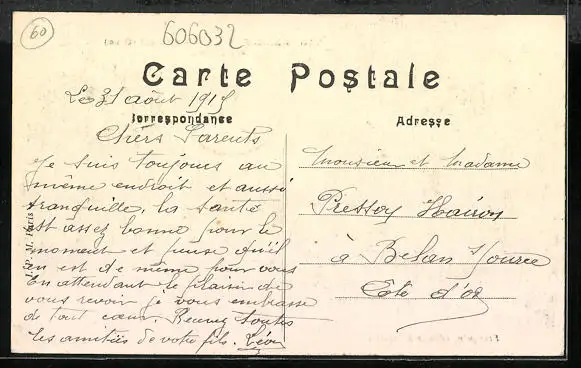 60
606032
Carte Postale
Le 31 août 191
Correspondance
Adresse
Chers Parents
Je suis toujours au
même endroit et aussi
tranquille, la santé
est assez bonne pour le
moment et pense qu'il
en est de même pour vous
En attendant le plaisir de
vous revoir je vous embrasse
de tout cœur. Recevez toutes
les amitiés de votre fils. Léon
Monsieur et Madame
Pressoy
à Belan
Côte d'or
Paris